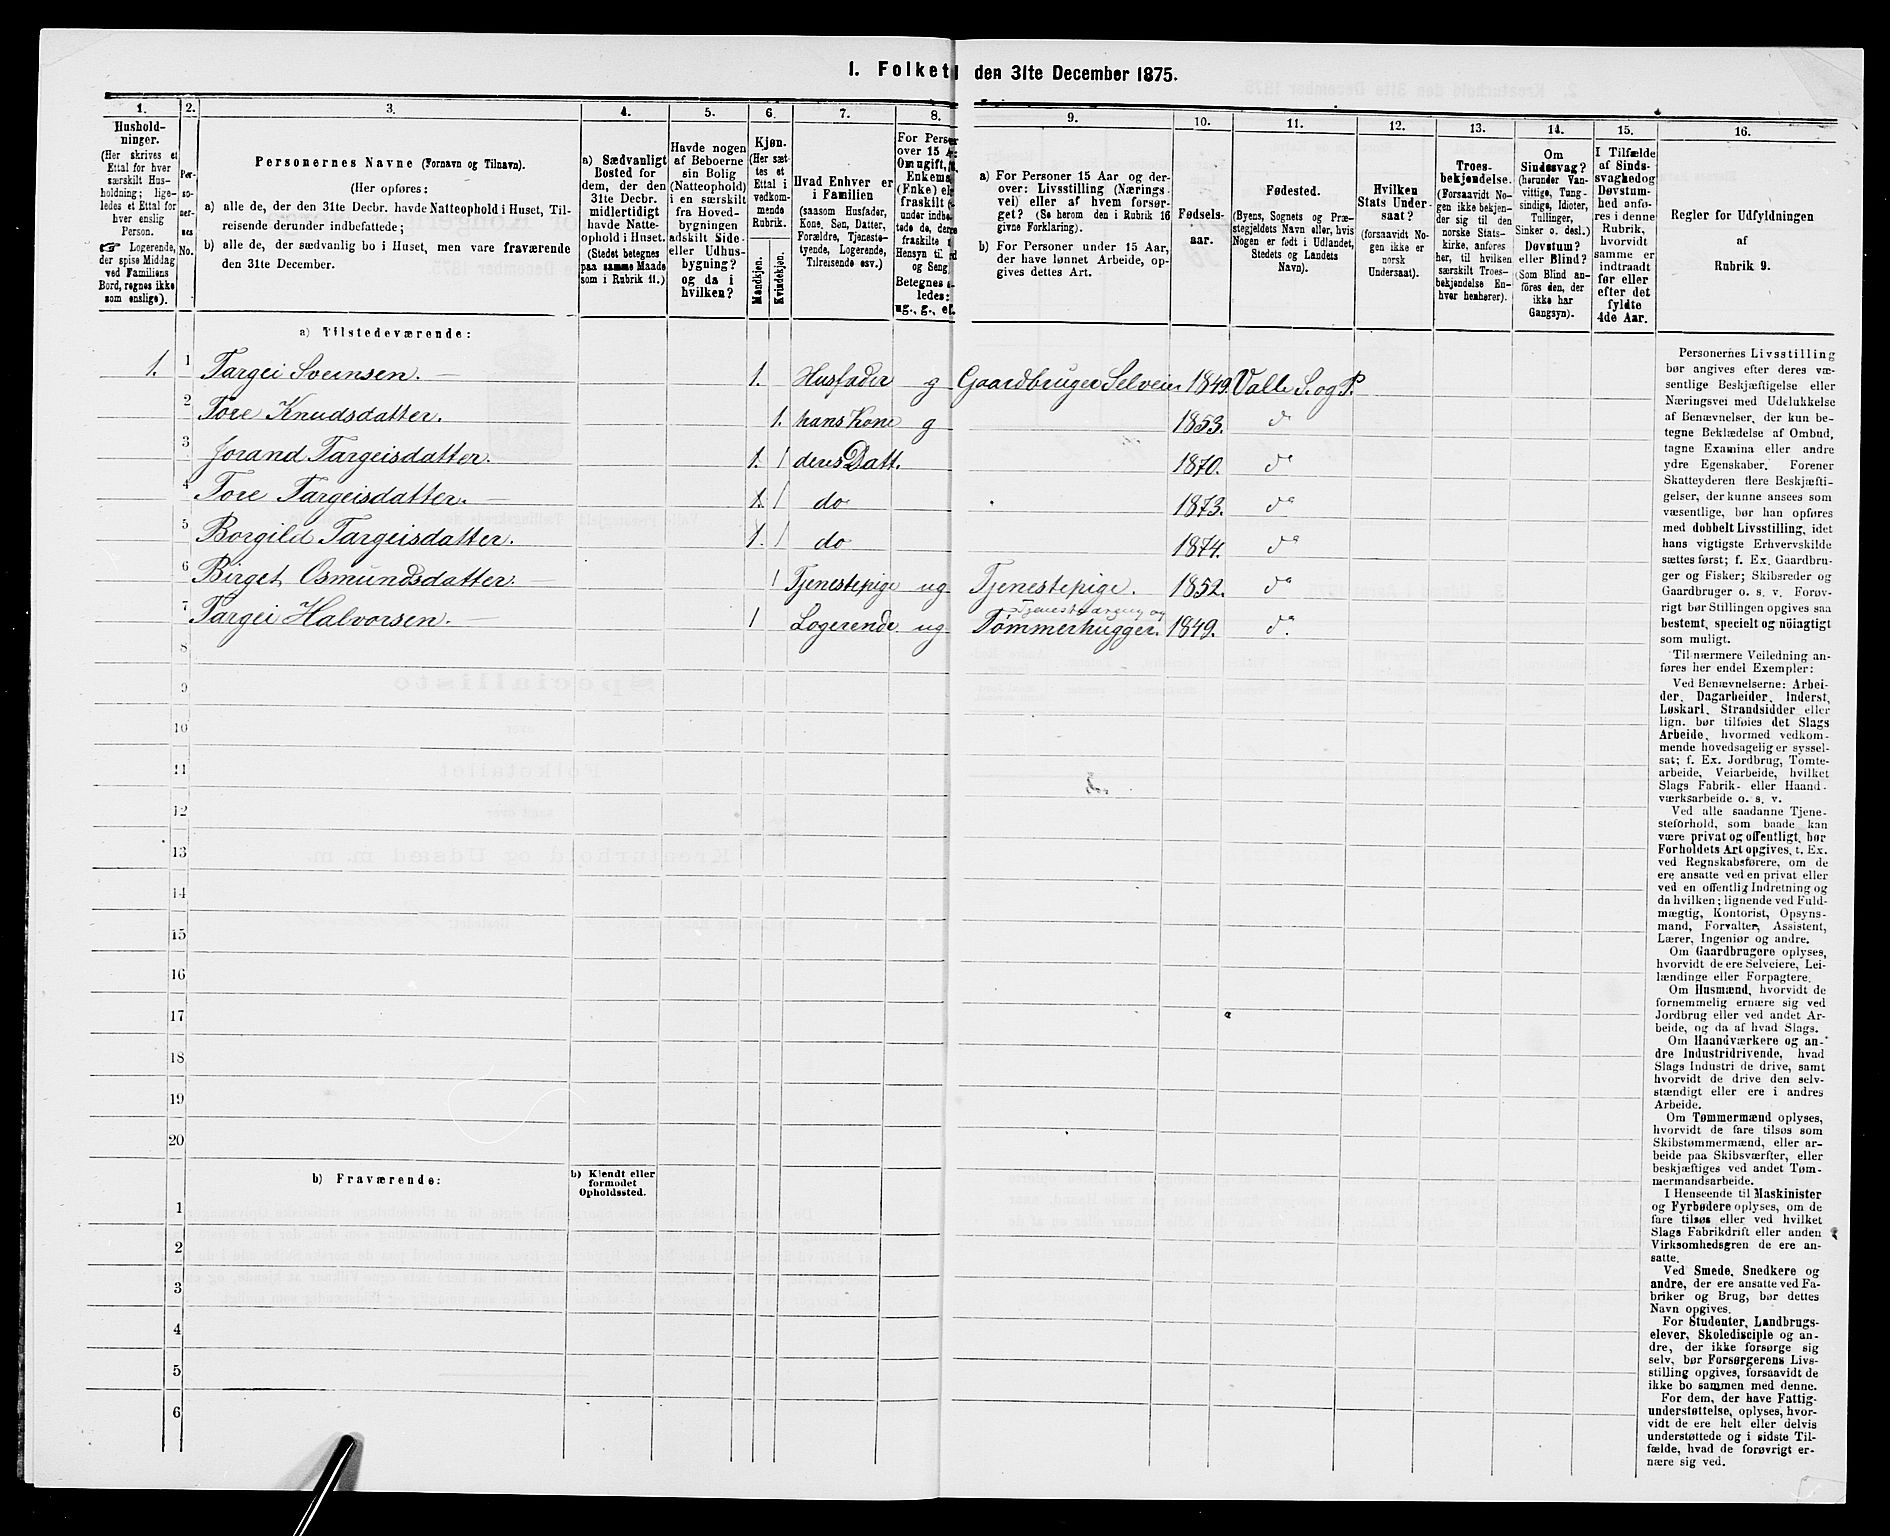 1. Folket den 31te December 1875.
1. 2. 3. 4. 5. 6. 7. 8. 9. 10. 11. 12. 13. 14. 15. 16.
Hushold-
ninger.
(Her skrives et
Ettal for hver
særskilt Hus-
holdning; lige-
ledes et Ettal for
hver enslig
Person.
☞ Logerende,
der spise Middag
ved Familiens
Bord, regnes ikke
som enslige).
Per-
so-
ner-
nes
No.
Personernes Navne (Fornavn og Tilnavn).
(Her opføres:
a) alle de, der den 31te Decbr. havde Natteophold i Huset, Til-
reisende derunder indbefattede;
b) alle de, der sædvanlig bo i Huset, men vare fraværende
den 31te December.
a) Sædvanligt
Bosted for
dem, der den
31te Decbr.
midlertidigt
havde Natte-
ophold i Huset.
(Stedet betegnes
paa samme Maade
som i Rubrik 11.)
Havde nogen
af Beboerne
sin Bolig
(Natteophold)
i en særskilt
fra Hoved-
bygningen
adskilt Side-
eller Udhus-
bygning?
og da i
hvilken?
Kjøn.
(Her sæt-
tes et
Ettal i
vedkom-
mende
Rubrik.
Mandkjøn.
Kvindekjøn.
Hvad Enhver er
i Familien
(saasom Husfader,
Kone, Søn, Datter,
Forældre, Tjeneste-
tyende, Logerende,
Tilreisende osv.)
For Perso
over 15 A
Om ugift,
Enkema
(Enke) el
fraskilt
under indbe
tede de, dere
fraskilte
Hensyn til
og Seng.
Betegnes
ledes:
ug., g., e
a) For Personer 15 Aar og der-
over: Livsstilling (Nærings-
vei) eller af hvem forsør-
get? (Se herom den i Rubrik 16
givne Forklaring).
b) For Personer under 15 Aar,
der have lønnet Arbeide, op-
gives dettes Art.
Fødsels-
aar.
Fødested.
(Byens, Sognets og Præ-
stegjeldets Navn eller, hvis
Nogen er født i Udlandet,
Stedets og Landets
Navn).
Hvilken
Stats Under-
saat?
(forsaavidt No-
gen ikke er
norsk
Undersaat).
Troes-
bekjendelse.
(Forsaavidt No-
gen ikke bekjen-
der sig til den
norske Stats-
kirke, anføres
her, til hvilken
særskilt Troes-
bekjendelse En-
hver henhører).
Om
Sindssvag?
(herunder Van-
vittige, Tung-
sindige, Idioter,
Tullinger,
Sinker o. desl.)
Døvstum?
eller Blind?
(Som Blind an-
føres den, der
ikke har
Gangsyn).
I Tilfælde
af Sinds-
svaghed og
Døvstum-
hed anfø-
res i denne
Rubrik,
hvorvidt
samme er
indtraadt
før eller
efter det
fyldte
4de Aar.
Regler for Udfyldningen
af
Rubrik 9.
a) Tilstedeværende:
1. 1 Targei Sveinsen. 1. Husfader g Gaardbruger Selveier 1849. Valle S. og P.
2 Tore Knudsdatter. 1. hans Kone g 1853. do
3 Jorand Targeisdatter. 1. 1 deres Datt. 1870. do
4 Tore Targeisdatter. 1. 1 do 1873. do
5 Borgild Targeisdatter. 1. 1 do 1874. do
6 Birget Osmundsdatter. 1 Tjenestepige ug Tjenestepige. 1852. do
7 Targei Halvorsen. 1 Logerende ug Tømmerhugger. 1849. do.
8
9
10
11
12
13
14
15
16
17
18
19
20
b) Fraværende:
b) Kjendt eller
formodet
Opholdssted.
1
2
3
4
5
6
Personernes Livsstilling
bør angives efter deres væ-
sentlige Beskjæftigelse eller
Næringsvei med Udelukkelse
af Benævnelser, der kun be-
tegne Beklædelse af Ombud,
tagne Examina eller andre
ydre Egenskaber. Forener
Skatteyderen flere Beskjæfti-
gelser, der kunne ansees som
væsentlige, bør han opføres
med dobbelt Livsstilling, idet
hans vigtigste Erhvervskilde
sættes først; f. Ex. Gaardbru-
ger og Fisker; Skibsreder og
Gaardbruger o. s. v. Forøv-
rigt bør Stillingen opgives saa
bestemt, specielt og nöiagtigt
som muligt.
Til nærmere Veiledning an-
føres her endel Exempler:
Ved Benævnelserne: Arbei-
der, Dagarbeider, Inderst,
Løskarl, Strandsidder eller
lign. bør tilføies det Slags
Arbeide, hvormed vedkom-
mende hovedsagelig er syssel-
sat; f. Ex. Jordbrug, Tomte-
arbeide, Veiarbeide, hvilket
Slags Fabrik- eller Haand-
værksarbeide o. s. v.
Ved alle saadanne Tjene-
steforhold, som baade kan
være privat og offentligt, bør
Forholdets Art opgives, t. Ex.
ved Regnskabsførere, om de
ere ansatte ved en privat eller
ved en offentlig Indretning og
da hvilken; lignende ved Fuld-
mægtig, Kontorist, Opsyns-
mand, Forvalter, Assistent,
Lærer, Ingeniør og andre.
Om Gaardbrugere oplyses,
hvorvidt de ere Selveiere, Lei-
lændinge eller Forpagtere.
Om Husmænd, hvorvidt de
fornemmelig ernære sig ved
Jordbrug eller ved andet Ar-
beide, og da af hvad Slags.
Om Haandværkere og an-
dre Industridrivende, hvad
Slags Industri de drive, samt
hvorvidt de drive den selv-
stændigt eller ere i andres
Arbeide.
Om Tømmermænd oplyses,
hvorvidt de fare tilsøs som
Skibstømmermænd, eller ar-
beide paa Skibsværfter, eller
beskjæftiges ved andet Tøm-
mermandsarbeide.
I Henseende til Maskinister
og Fyrbødere oplyses, om de
fare tilsøs eller ved hvilket
Slags Fabrikdrift eller anden
Virksomhedsgren de ere an-
satte.
Ved Smede, Snedkere og
andre, der ere ansatte ved Fa-
briker og Brug, bør dettes
Navn opgives.
For Studenter, Landbrugs-
elever, Skoledisciple og an-
dre, der ikke forsørge sig
selv, bør Forsørgerens Livs-
stilling opgives, forsaavidt de
ikke bo sammen med denne.
For dem, der have Fattig-
understøttelse, oplyses, hvor-
vidt de ere helt eller delvis
understøttede og i sidste Til-
fælde, hvad de forøvrigt er-
nære sig ved.